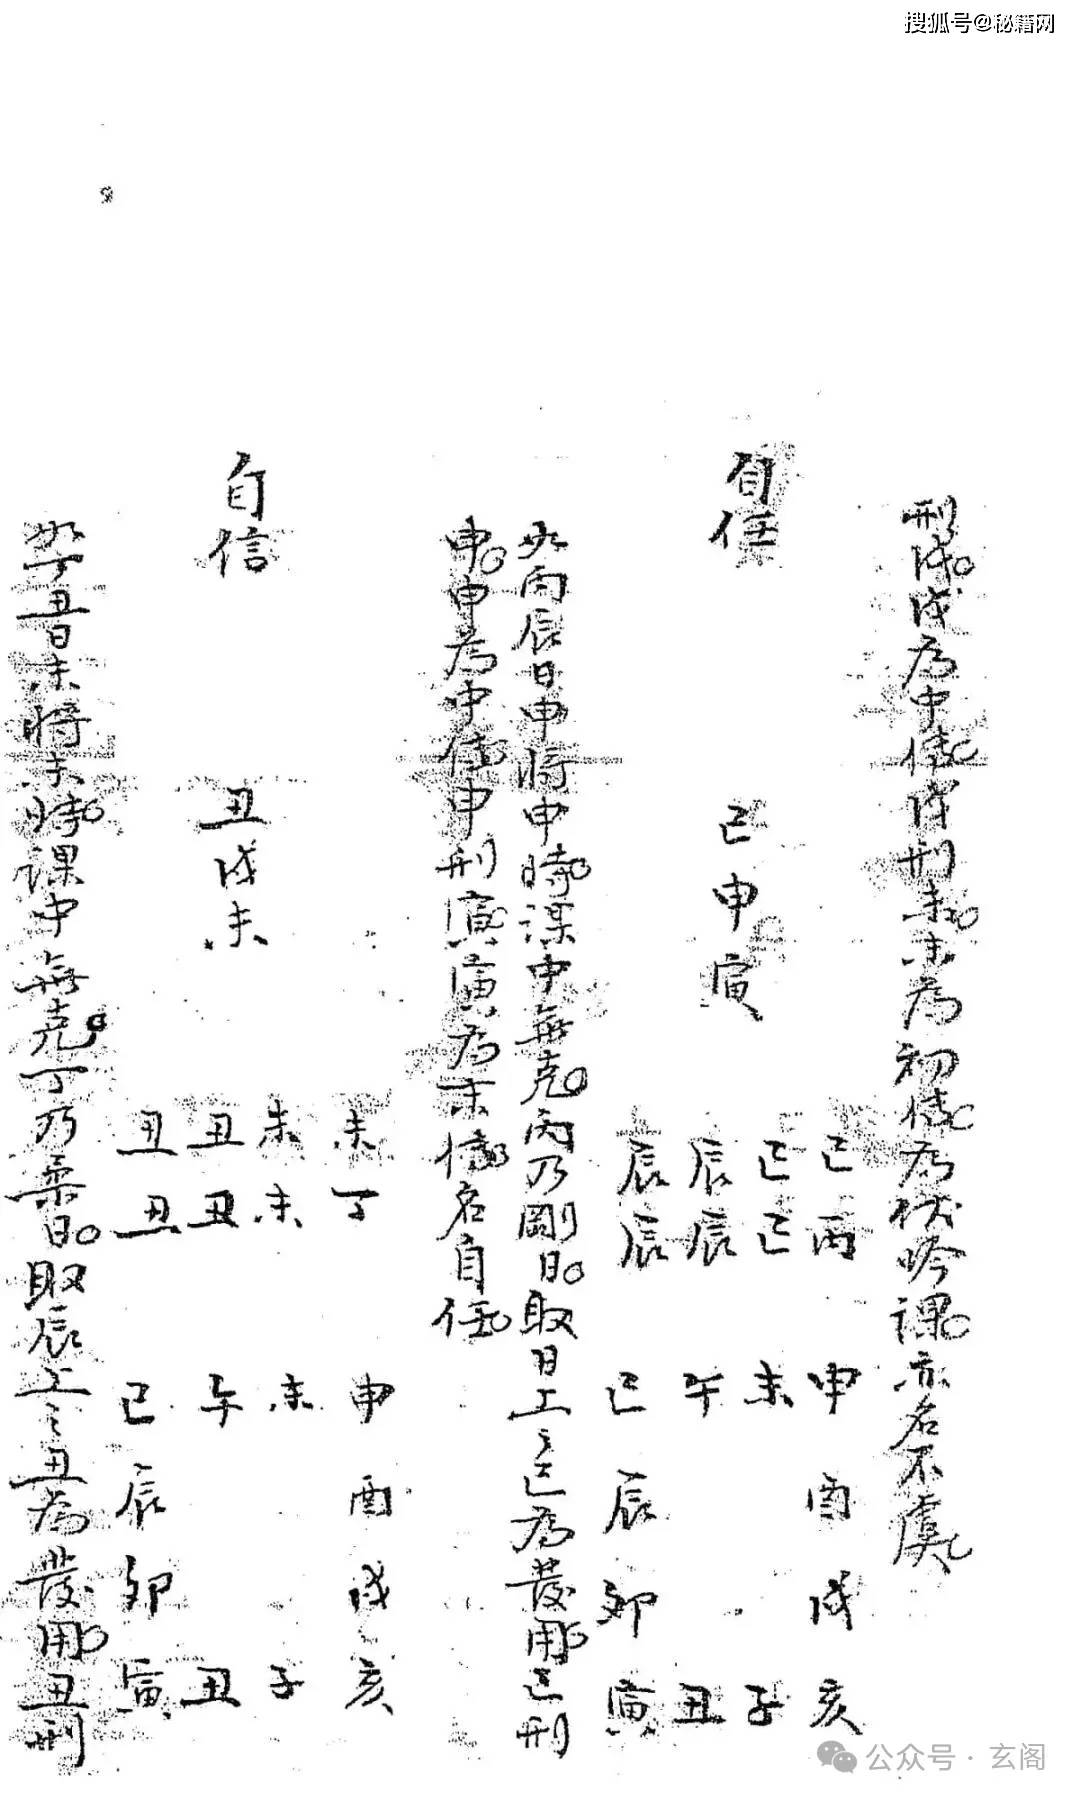 搜狐号@秘籍网
刑戌。戌為中傳。戌刑未。未為初傳。為伏吟課。亦名不虞
自任
巳申寅
巳巳辰辰
丙巳辰辰
申未午巳
酉辰
戌卯
亥子丑寅
如丙辰日申將申時。課中無克。丙乃剛日。取日上之巳為發用。巳刑
申。申為中傳。申刑寅。寅為末傳。名自任。
自信
丑戌未
未未丑丑
丁未丑丑
申未午巳
酉辰
戌卯
亥子丑寅
如丁丑日未將未時。課中無克。丁乃柔日。取辰上之丑為發用。丑刑
公众号·玄阁